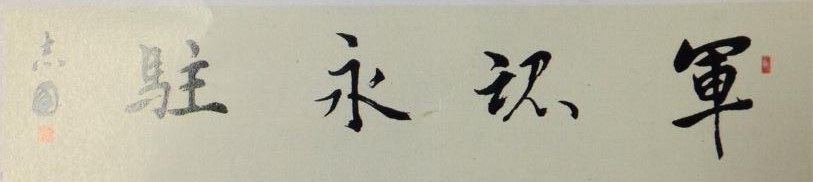 軍魂永駐
志國